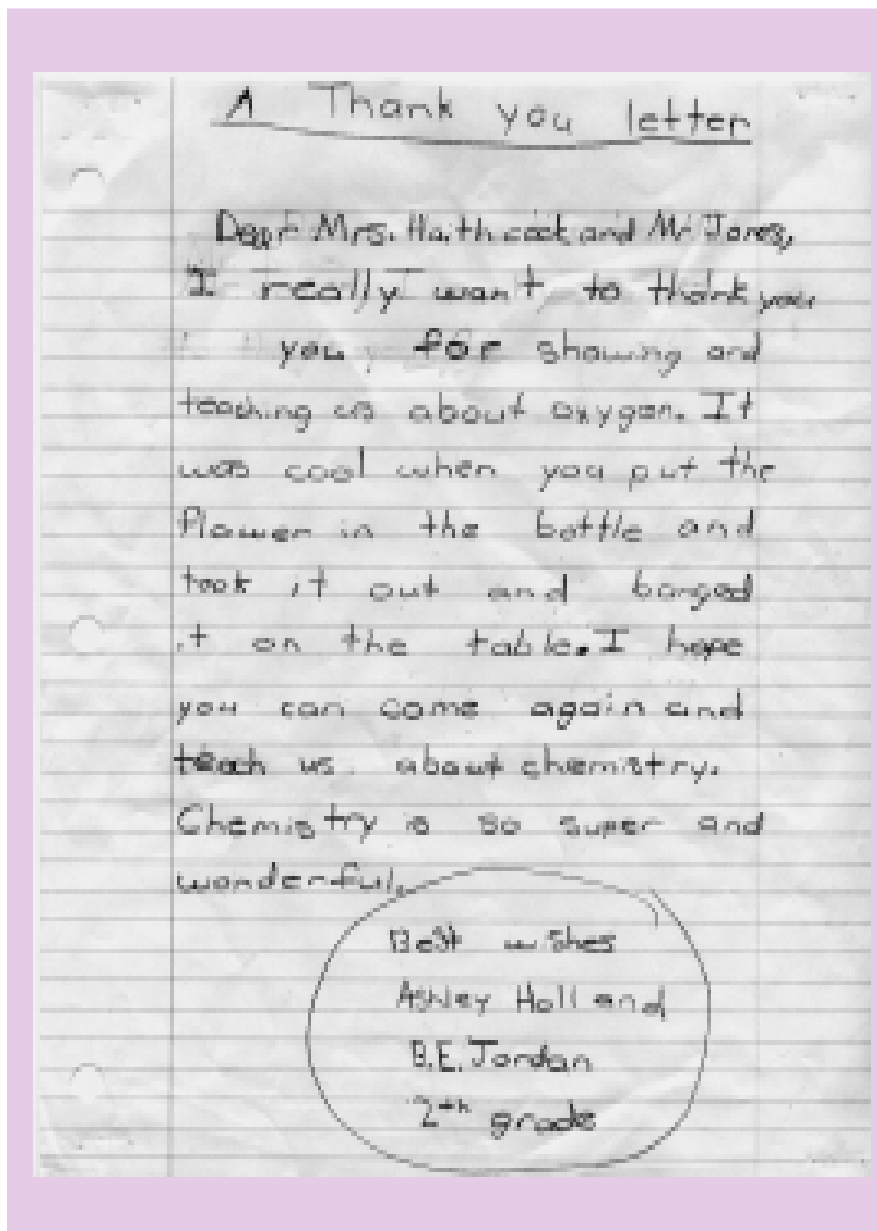 A Thank you letter
Dear Mrs. Haithcock and Mr. Jones,
I really I want to thank you
you for showing and
teaching us about oxygen. It
was cool when you put the
flower in the bottle and
took it out and banged
it on the table. I hope
you can come again and
teach us about chemistry.
Chemistry is so super and
wonderful.
Best wishes
Ashley Holland
B.E. Jordan
2th grade